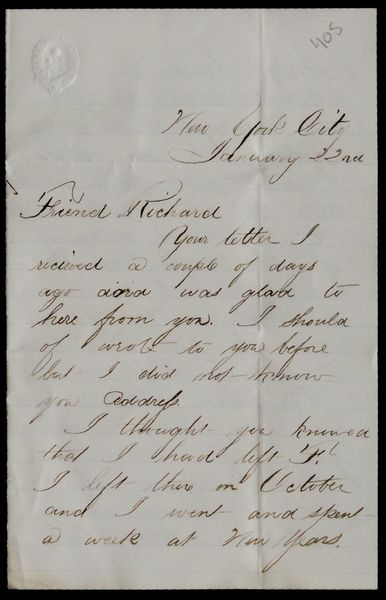 408
New York City
January 23rd
Friend Richard
Your letter I
recieved a couple of days
ago and was glad to
here from you. I should
of wrote to you before
but I did not know
you Address
I thought you knowed
that I had left Ft
I left thire in October
and I went and spent
a week at New Years.